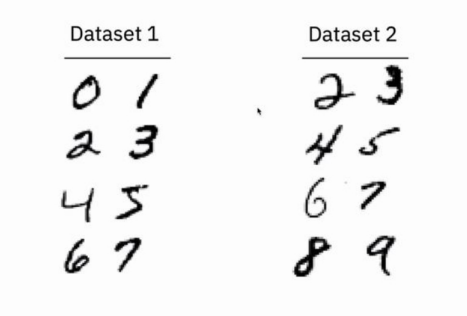 Dataset 1
0 1
2 3
4 5
6 7
Dataset 2
2 3
4 5
6 7
8 9